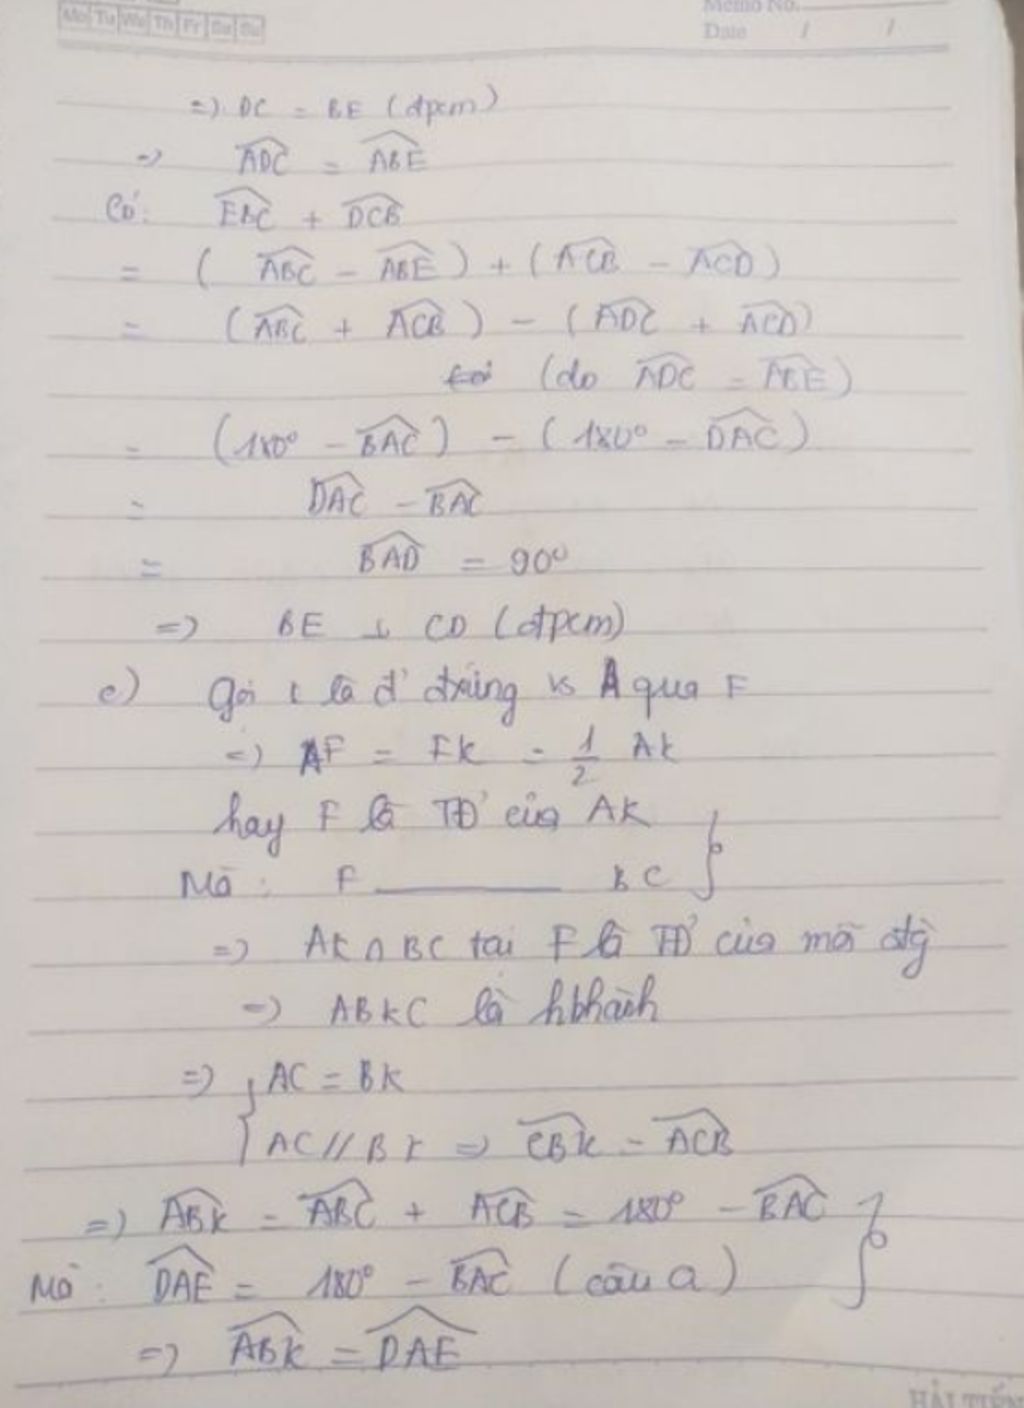 Mo Tu We Th Fr Sa Su
Memo No.
Date / /
=> DC = BE (đpcm)
=> ADC = ABE
Có: EBC + DCB
= ( ABC - ABE ) + ( ACB - ACD )
= ( ABC + ACB ) - ( ADC + ACD )
(do ADC = ABE )
= (180° - BAC ) - ( 180° - DAC )
= DAC - BAC
= BAD = 90°
=> BE ⊥ CD (đpcm)
c) Gọi K là đ' đxứng vs A qua F
=> AF = FK = 1/2 AK
hay F là TĐ' của AK }
Mà: F ______ BC
=> AK ∩ BC tại F là TĐ' của mỗi đg
=> ABKC là hbhành
=> { AC = BK
AC // BK => CBK = ACB
=> ABK = ABC + ACB = 180° - BAC }
Mà: DAE = 180° - BAC ( câu a )
=> ABK = DAE
HẢI TIẾN